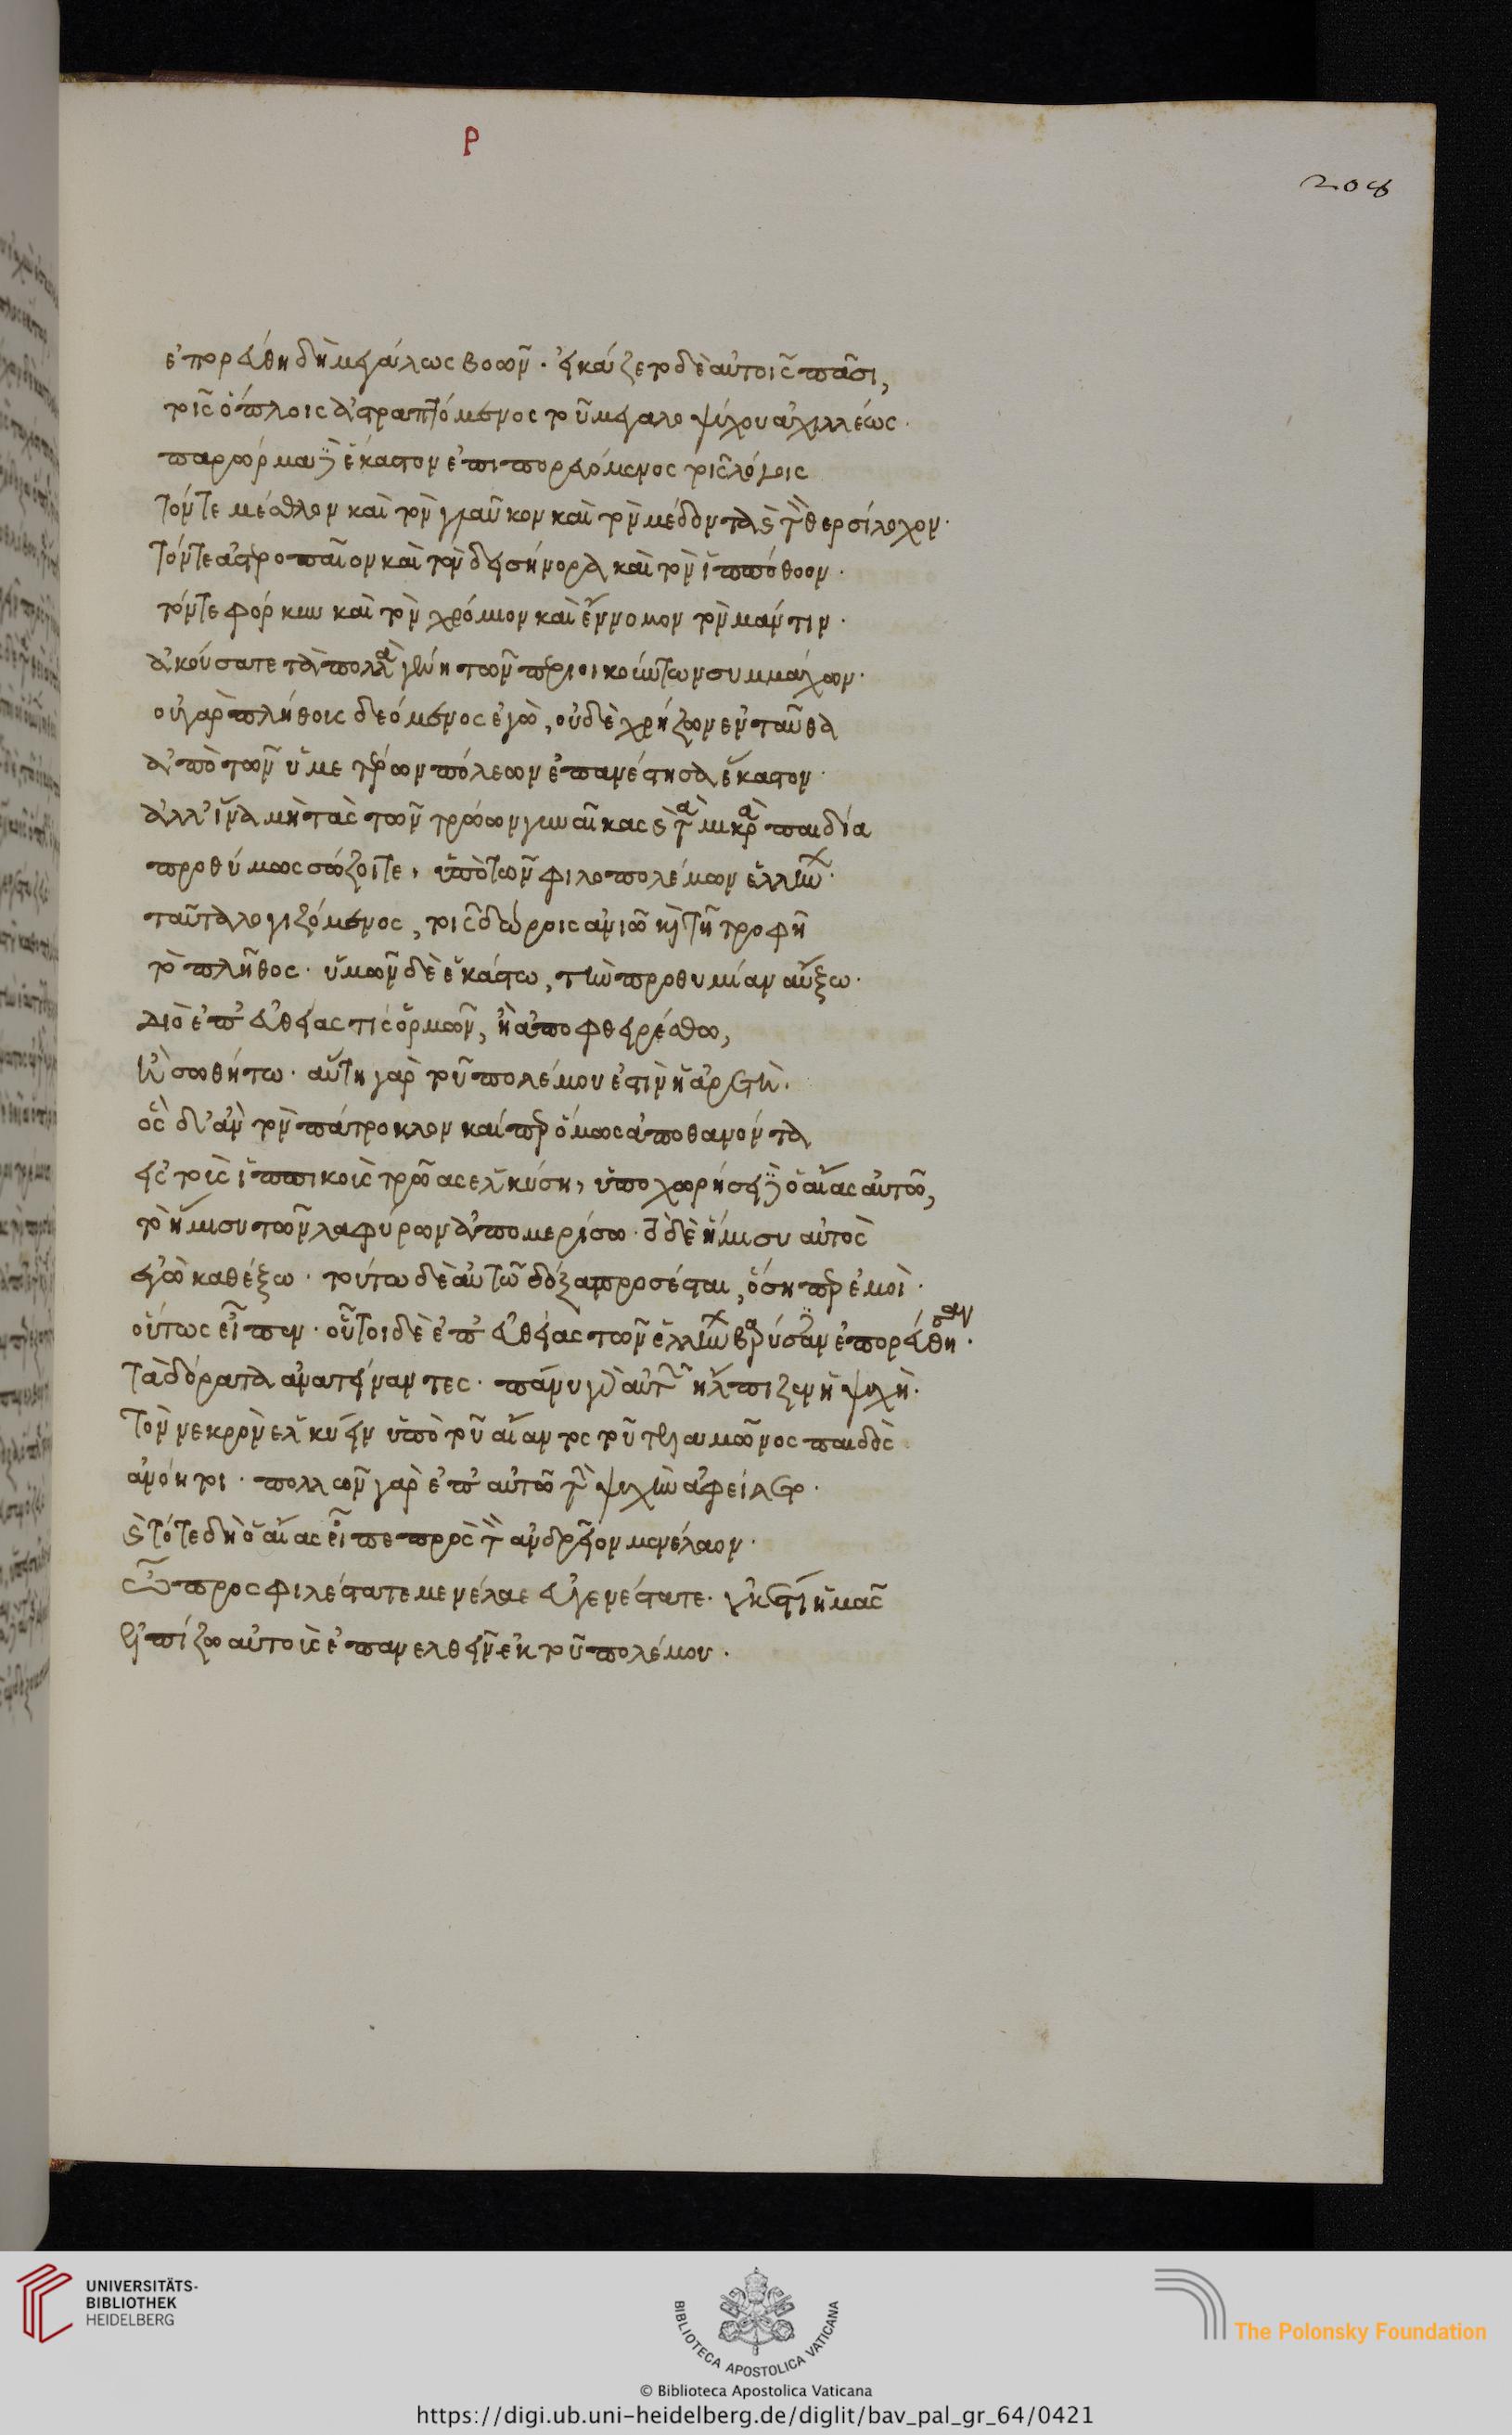 ρ
208
ἐπορεύθη δὴ μεγάλως βοῶν. εἰκάζετο δὲ αὐτοῖς πᾶσι,
τοῖς ὅπλοις ἀστραπτόμενος τοῦ μεγαλοψύχου ἀχιλλέως.
παρώρμα δὲ ἕκαστον ἐπιπορευόμενος τοῖς λόγοις
τόν τε μέσθλον καὶ τὸν γλαῦκον καὶ τὸν μέδοντα καὶ τὸν θερσίλοχον.
τόν τε ἀστεροπαῖον καὶ τὸν δεισήνορα καὶ τὸν ἱππόθοον.
τόν τε φόρκυν καὶ τὸν χρόμιον καὶ ἔννομον τὸν μάντιν.
ἀκούσατε τὰ πολλὰ γένη τῶν περιοικούντων συμμάχων.
οὐ γὰρ πλήθοις δεόμενος ἐγὼ, οὐδὲ χρήζων ἐνταῦθα
ἀπὸ τῶν ὑμετέρων πόλεων ἐπανέστησα ἕκαστον.
ἀλλ' ἵνα μὴ τὰς τῶν τρώων γυναῖκας καὶ τὰ μικρὰ παιδία
προθύμως σώζοιτε, ὑπὸ τῶν φιλοπολέμων ἑλλήνων.
ταῦτα λογιζόμενος, τοῖς δώροις ἀνιῶ καὶ τῇ τροφῇ
τὸ πλῆθος. ὑμῶν δὲ ἑκάστω, τὴν προθυμίαν αὔξω.
διὸ ἐπ' εὐθείας τίς ὁρμῶν, ἢ ἀποφθειρέσθω,
ἢ σωθήτω. αὕτη γὰρ τοῦ πολέμου ἐστὶν ἡ ἀρετή.
ὃς δ' ἂν τὸν πάτροκλον καίπερ ὅμως ἀποθανόντα
εἰς τοὺς ἱππικοὺς τρῶας ἑλκύση, ὑποχωρήσει δὲ ὁ αἴας αὐτῶ,
τὸ ἥμισυ τῶν λαφύρων ἀπομερίσω. τὸ δὲ ἥμισυ αὐτὸς
ἐγὼ καθέξω. τούτω δὲ αὐτῶ δόξα προσέσται, ὅση περ ἐμοί.
οὕτως εἶπεν. οὗτοι δὲ ἐπ' εὐθείας τῶν ἑλλήνων βαρύσαντες ἐπορεύθησαν.
τὰ δόρατα ἀνατείναντες. πάνυ γὰρ αὐτῶν ἤλπιζεν ἡ ψυχή.
τὸν νεκρὸν ἑλκύειν ὑπὸ τοῦ αἴαντος τοῦ τελαμῶνος παιδός
ἀνόητοι. πολλῶν γὰρ ἐπ' αὐτῶ τὴν ψυχὴν ἀφείλετο.
καὶ τότε δὴ ὁ αἴας εἶπε πρὸς τὸν ἀνδρεῖον μενέλαον.
ὦ προσφιλέστατε μενέλαε εὐγενέστατε. οὐκ ἔτι ἡμᾶς
ἐλπίζω αὐτοὺς ἐπανελθεῖν ἐκ τοῦ πολέμου.
UNIVERSITÄTS-
BIBLIOTHEK
HEIDELBERG
BIBLIOTECA APOSTOLICA VATICANA
© Biblioteca Apostolica Vaticana
The Polonsky Foundation
https://digi.ub.uni-heidelberg.de/diglit/bav_pal_gr_64/0421